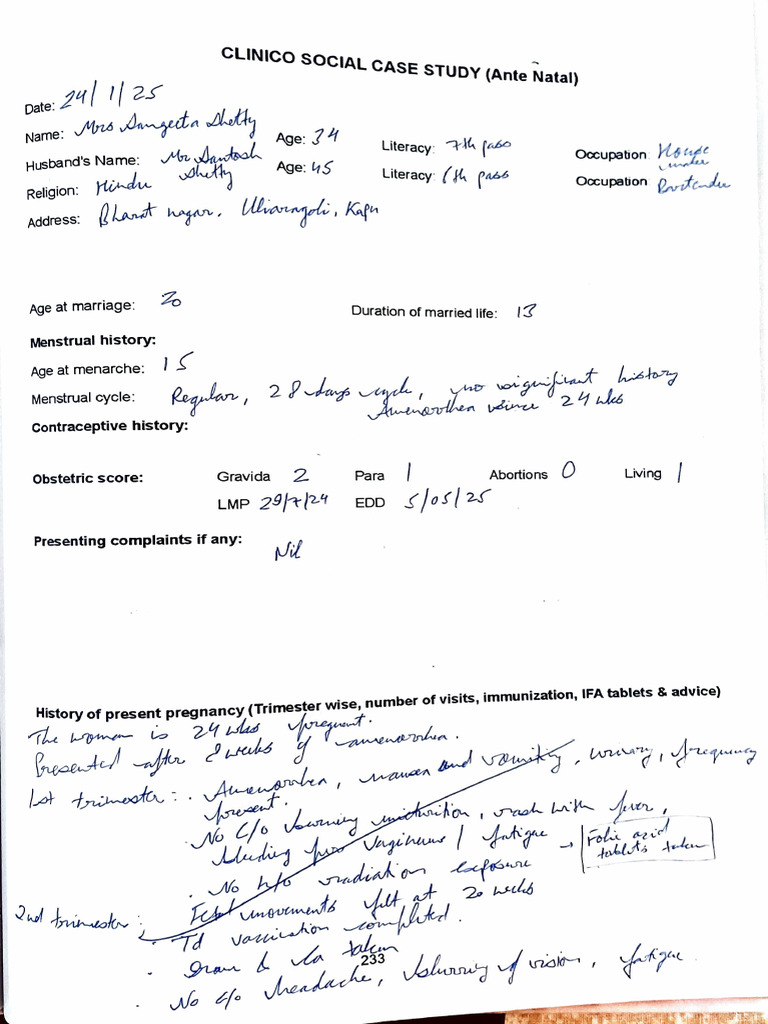 CLINICO SOCIAL CASE STUDY (Ante Natal)
Date: 24/1/25
Name: Mrs Sangeeta Shetty Age: 34 Literacy: 7th pass Occupation: House maker
Husband's Name: Mr Santosh Shetty Age: 45 Literacy: 6th pass Occupation Bartender
Religion: Hindu
Address: Bharat nagar, Uliaragoli, Kapu
Age at marriage: 20 Duration of married life: 13
Menstrual history:
Age at menarche: 15
Menstrual cycle: Regular, 28 days cycle, no significant history
Amenorrhea since 24 wks
Contraceptive history:
Obstetric score: Gravida 2 Para 1 Abortions 0 Living 1
LMP 29/7/24 EDD 5/05/25
Presenting complaints if any: Nil
History of present pregnancy (Trimester wise, number of visits, immunization, IFA tablets & advice)
The woman is 24 wks pregnant.
Presented after 8 weeks of amenorrhea.
1st trimester: . Amenorrhea, nausea and vomiting, urinary, frequency
present.
. No c/o burning micturition, rash with fever,
bleeding per vaginum / fatigue
. No h/o radiation exposure → Folic acid tablets taken
2nd trimester: Fetal movements felt at 20 weeks
. Td vaccination completed.
. Iron & Ca taken
233
. No c/o headache, blurring of vision, fatigue.